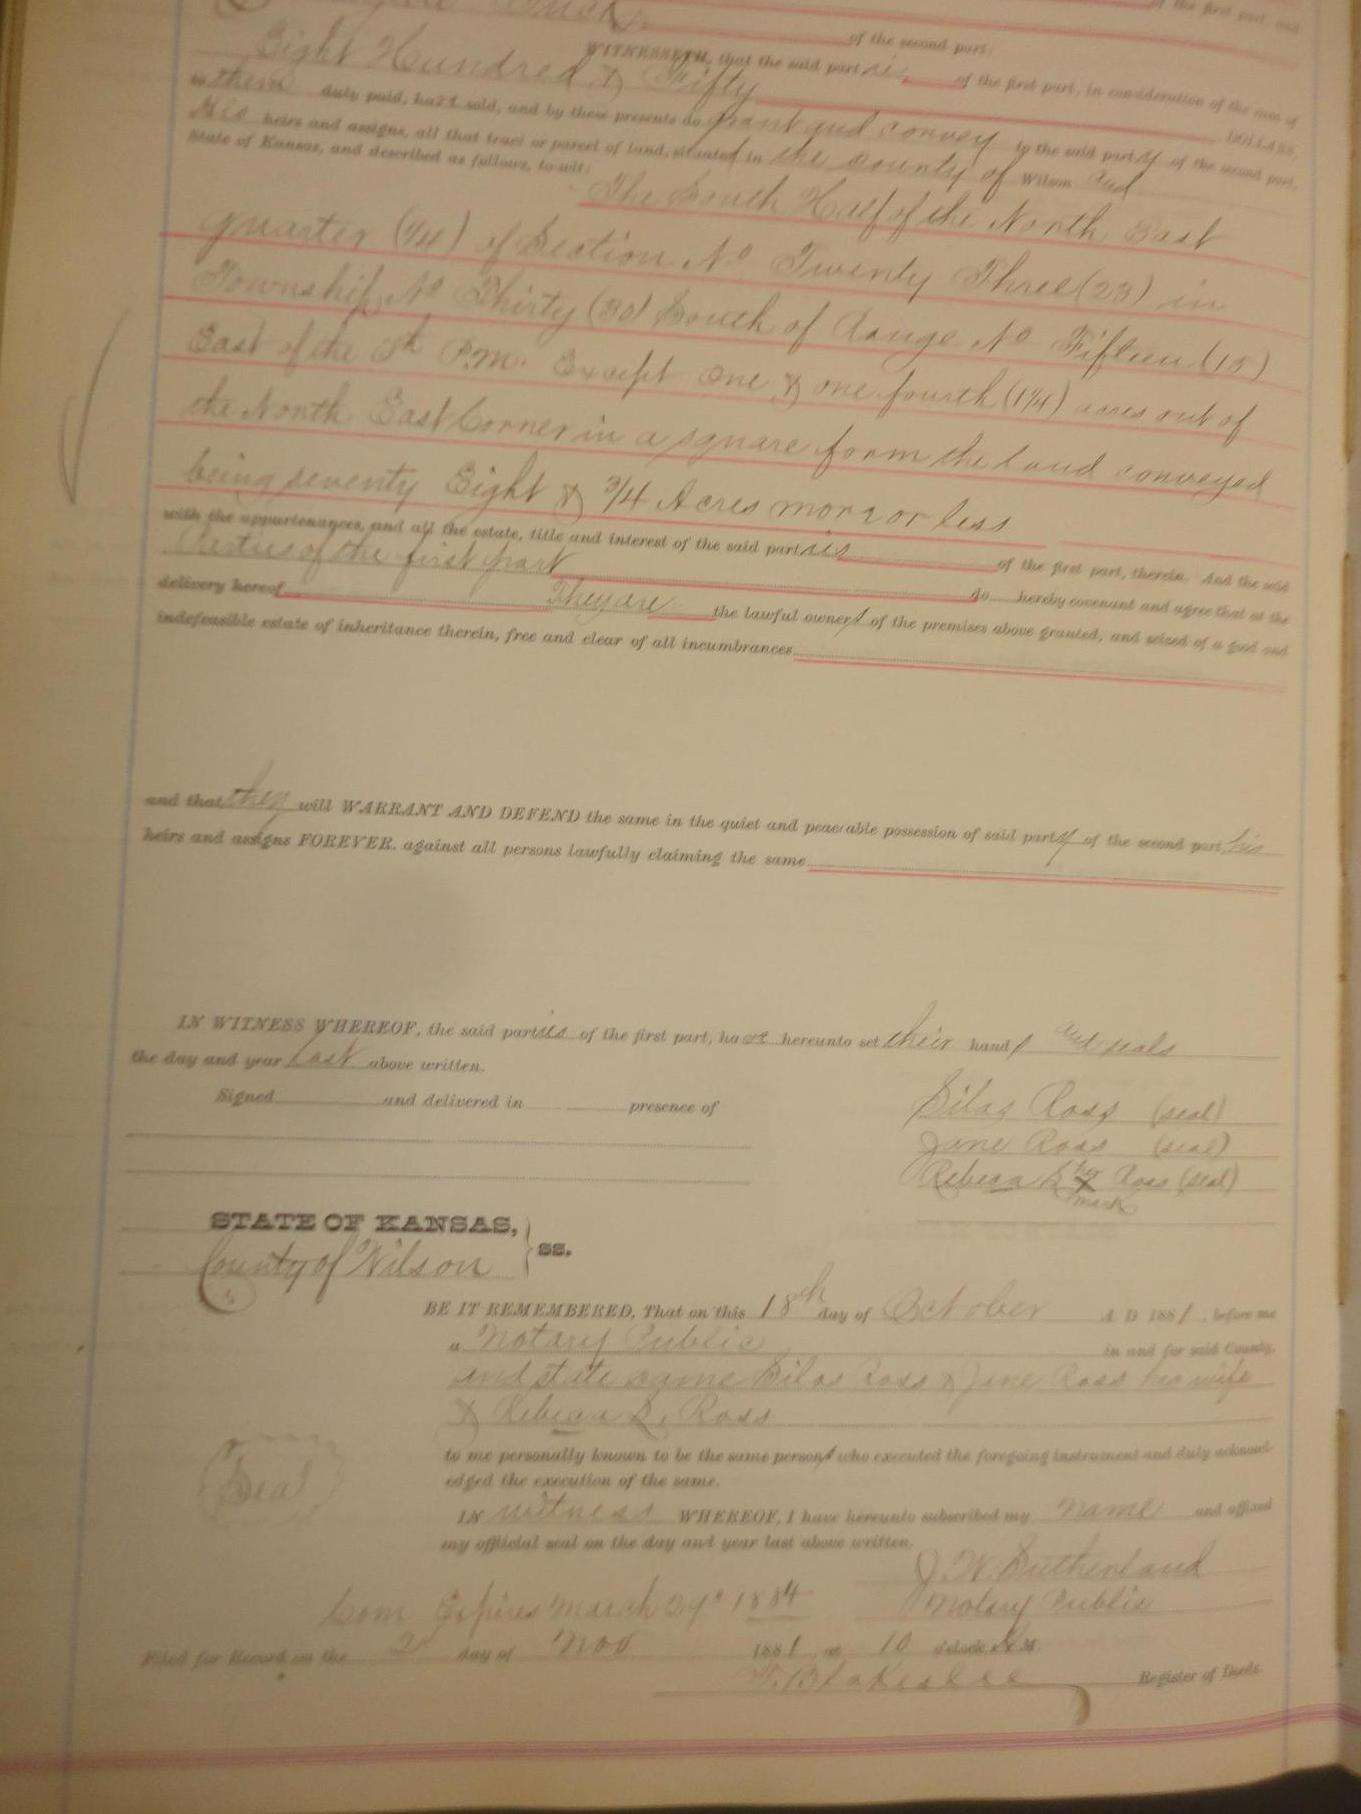 of the first part, and
of the second part:
WITNESSETH, that the said parties of the first part, in consideration of the sum of
Eight Hundred & Fifty DOLLARS,
to them duly paid, have sold, and by these presents do grant and convey to the said party of the second part,
His heirs and assigns, all that tract or parcel of land, situated in the County of Wilson and
State of Kansas, and described as follows, to-wit:
The South Half of the North East
quarter (1/4) of Section No Twenty Three (23) in
Township No Thirty (30) South of Range No Fifteen (15)
East of the 6th P.M. Except one & one fourth (1 1/4) acres out of
the North East Corner in a square form the land conveyed
being seventy Eight & 3/4 Acres more or less
with the appurtenances, and all the estate, title and interest of the said parties of the first part, therein. And the said
Parties of the first part do hereby covenant and agree that at the
delivery hereof They are the lawful owners of the premises above granted, and seized of a good and
indefeasible estate of inheritance therein, free and clear of all incumbrances
and that they will WARRANT AND DEFEND the same in the quiet and peaceable possession of said party of the second part his
heirs and assigns FOREVER. against all persons lawfully claiming the same
IN WITNESS WHEREOF, the said parties of the first part, have hereunto set their hands and seals
the day and year last above written.
Signed and delivered in presence of
Silas Ross (seal)
Jane Ross (seal)
Rebeca L her X Ross (seal)
mark
STATE OF KANSAS, } ss.
County of Wilson
BE IT REMEMBERED, That on this 18th day of October A. D 1881, before me
a Notary Public in and for said County,
and state came Silas Ross & Jane Ross his wife
& Rebeca L. Ross
to me personally known to be the same persons who executed the foregoing instrument and duly acknowl-
edged the execution of the same.
Seal
IN witness WHEREOF, I have hereunto subscribed my name and affixed
my official seal on the day and year last above written.
J. W. Sutherland
Com Expires March 1884 Notary Public
Filed for Record on the 2 day of Nov 1881 at 10 o'clock A.M.
Blakeslee Register of Deeds